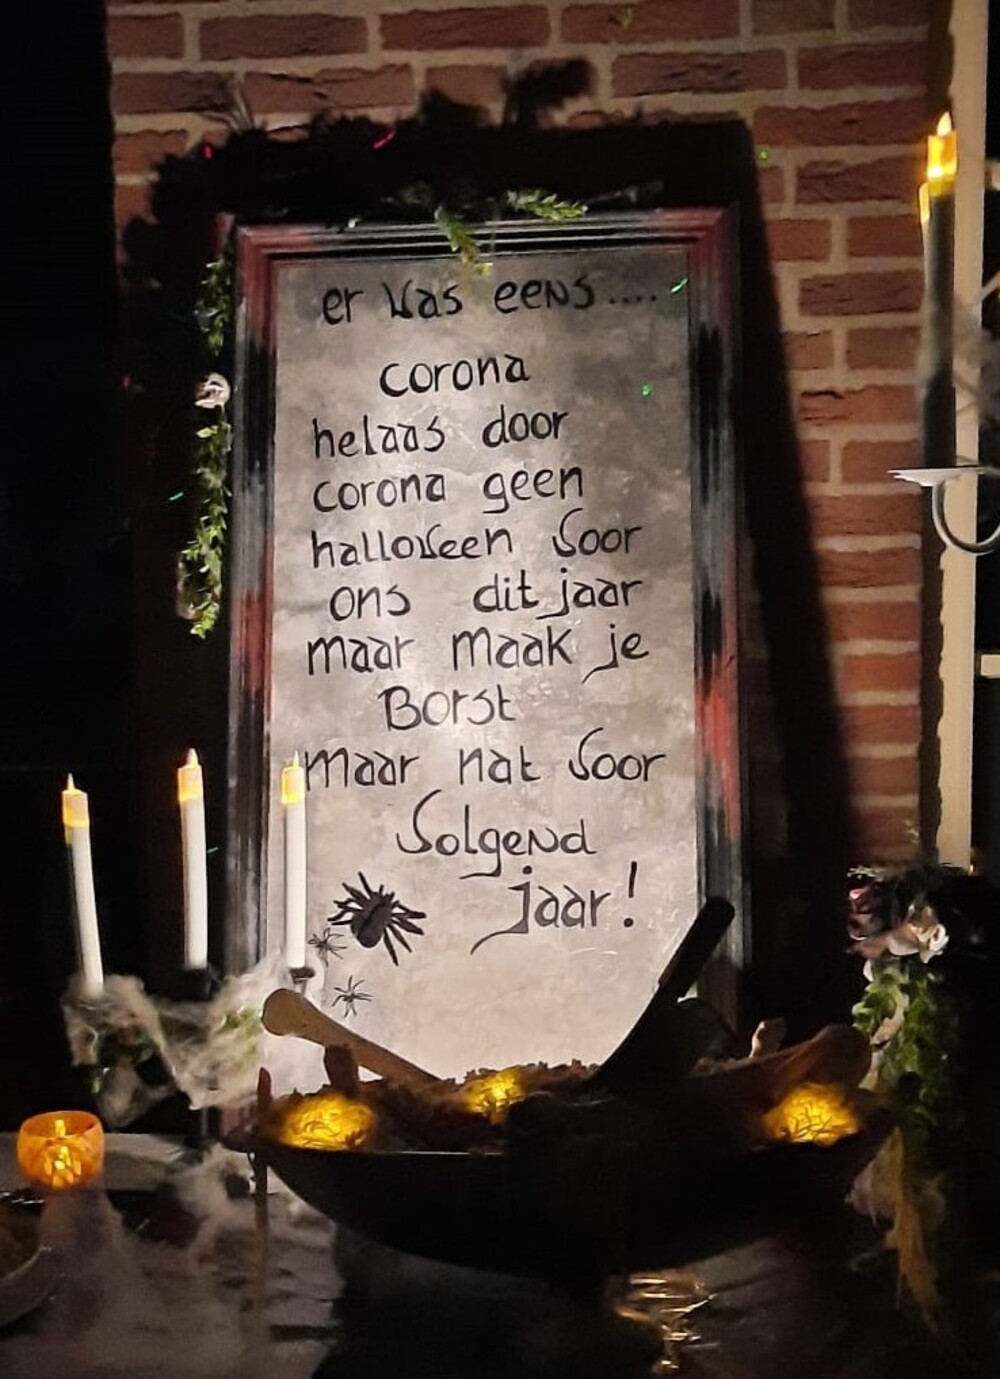 er was eens....
corona
helaas door
corona geen
halloween voor
ons dit jaar
maar maak je
Borst
maar nat voor
volgend
jaar!